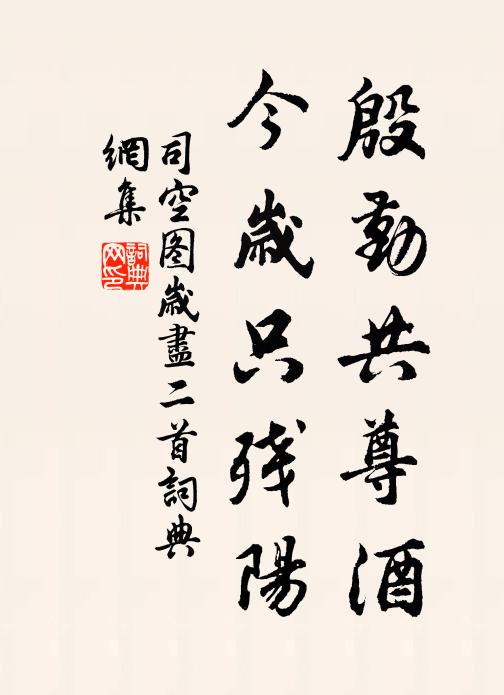 殷勤共尊酒
今歲只残陽
司空图歲盡二首詞典
網集
詞典網印